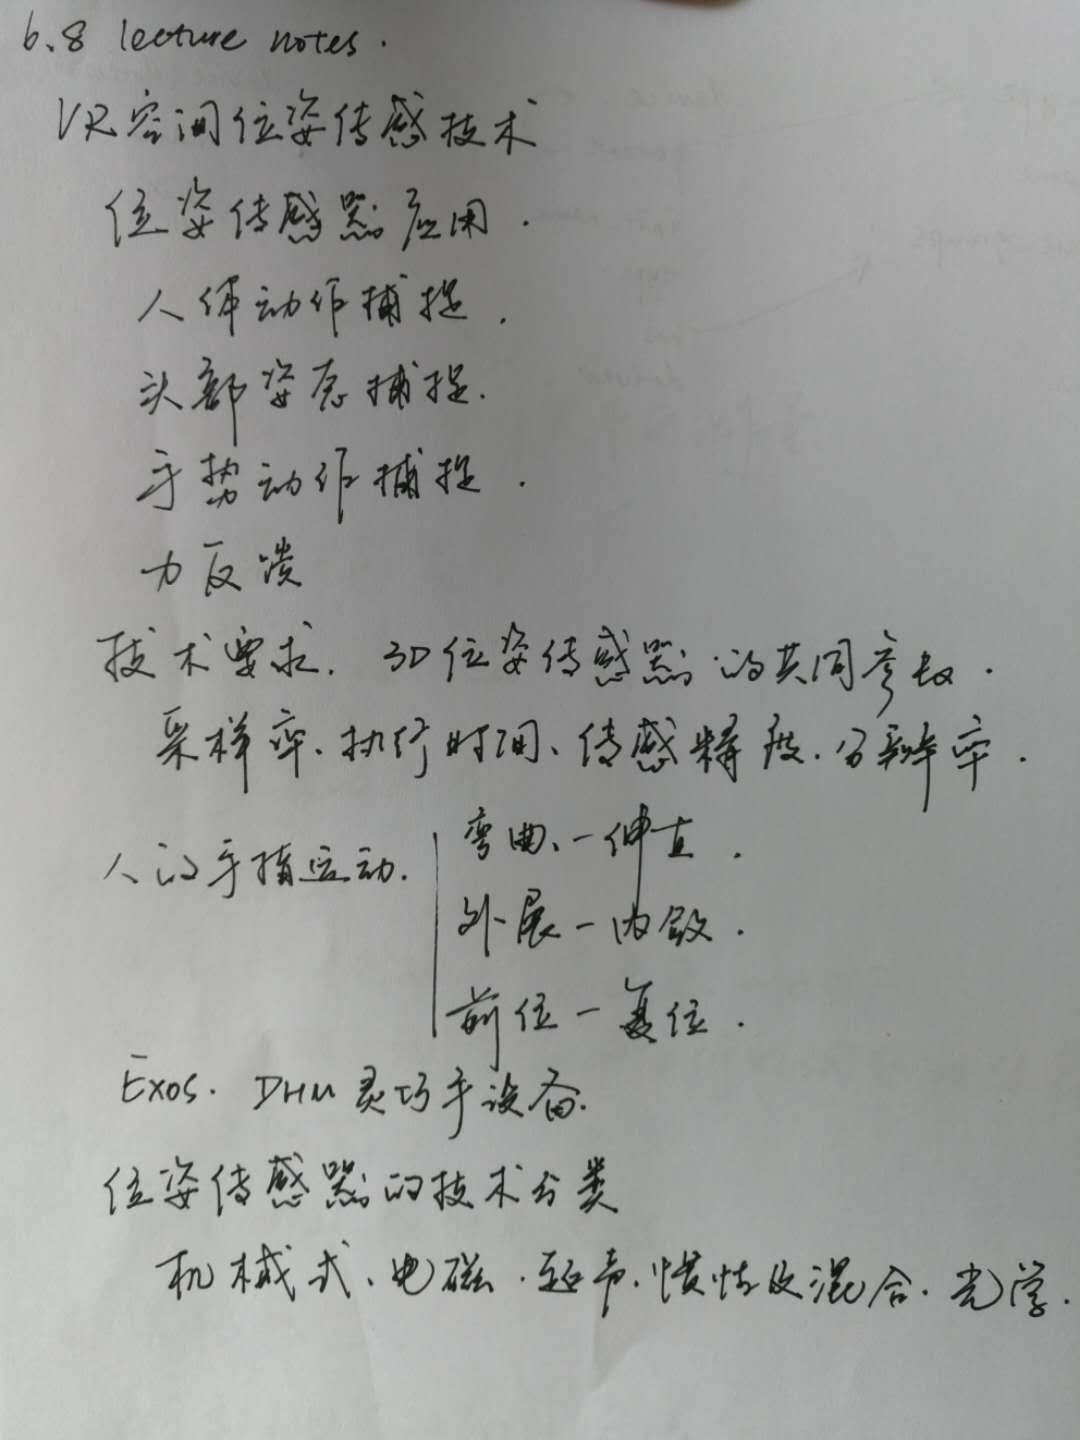 6.8 lecture notes.
VR空间位姿传感技术
位姿传感器应用.
人体动作捕捉.
头部姿态捕捉.
手势动作捕捉.
力反馈
技术要求. 3D位姿传感器的共同参数.
采样率、执行时间、传感精度、分辨率.
人的手指运动.
弯曲、一伸直.
外展一内敛.
前位一复位.
Exos. DHM灵巧手设备.
位姿传感器的技术分类
机械式、电磁.超声.惯性及混合.光学.